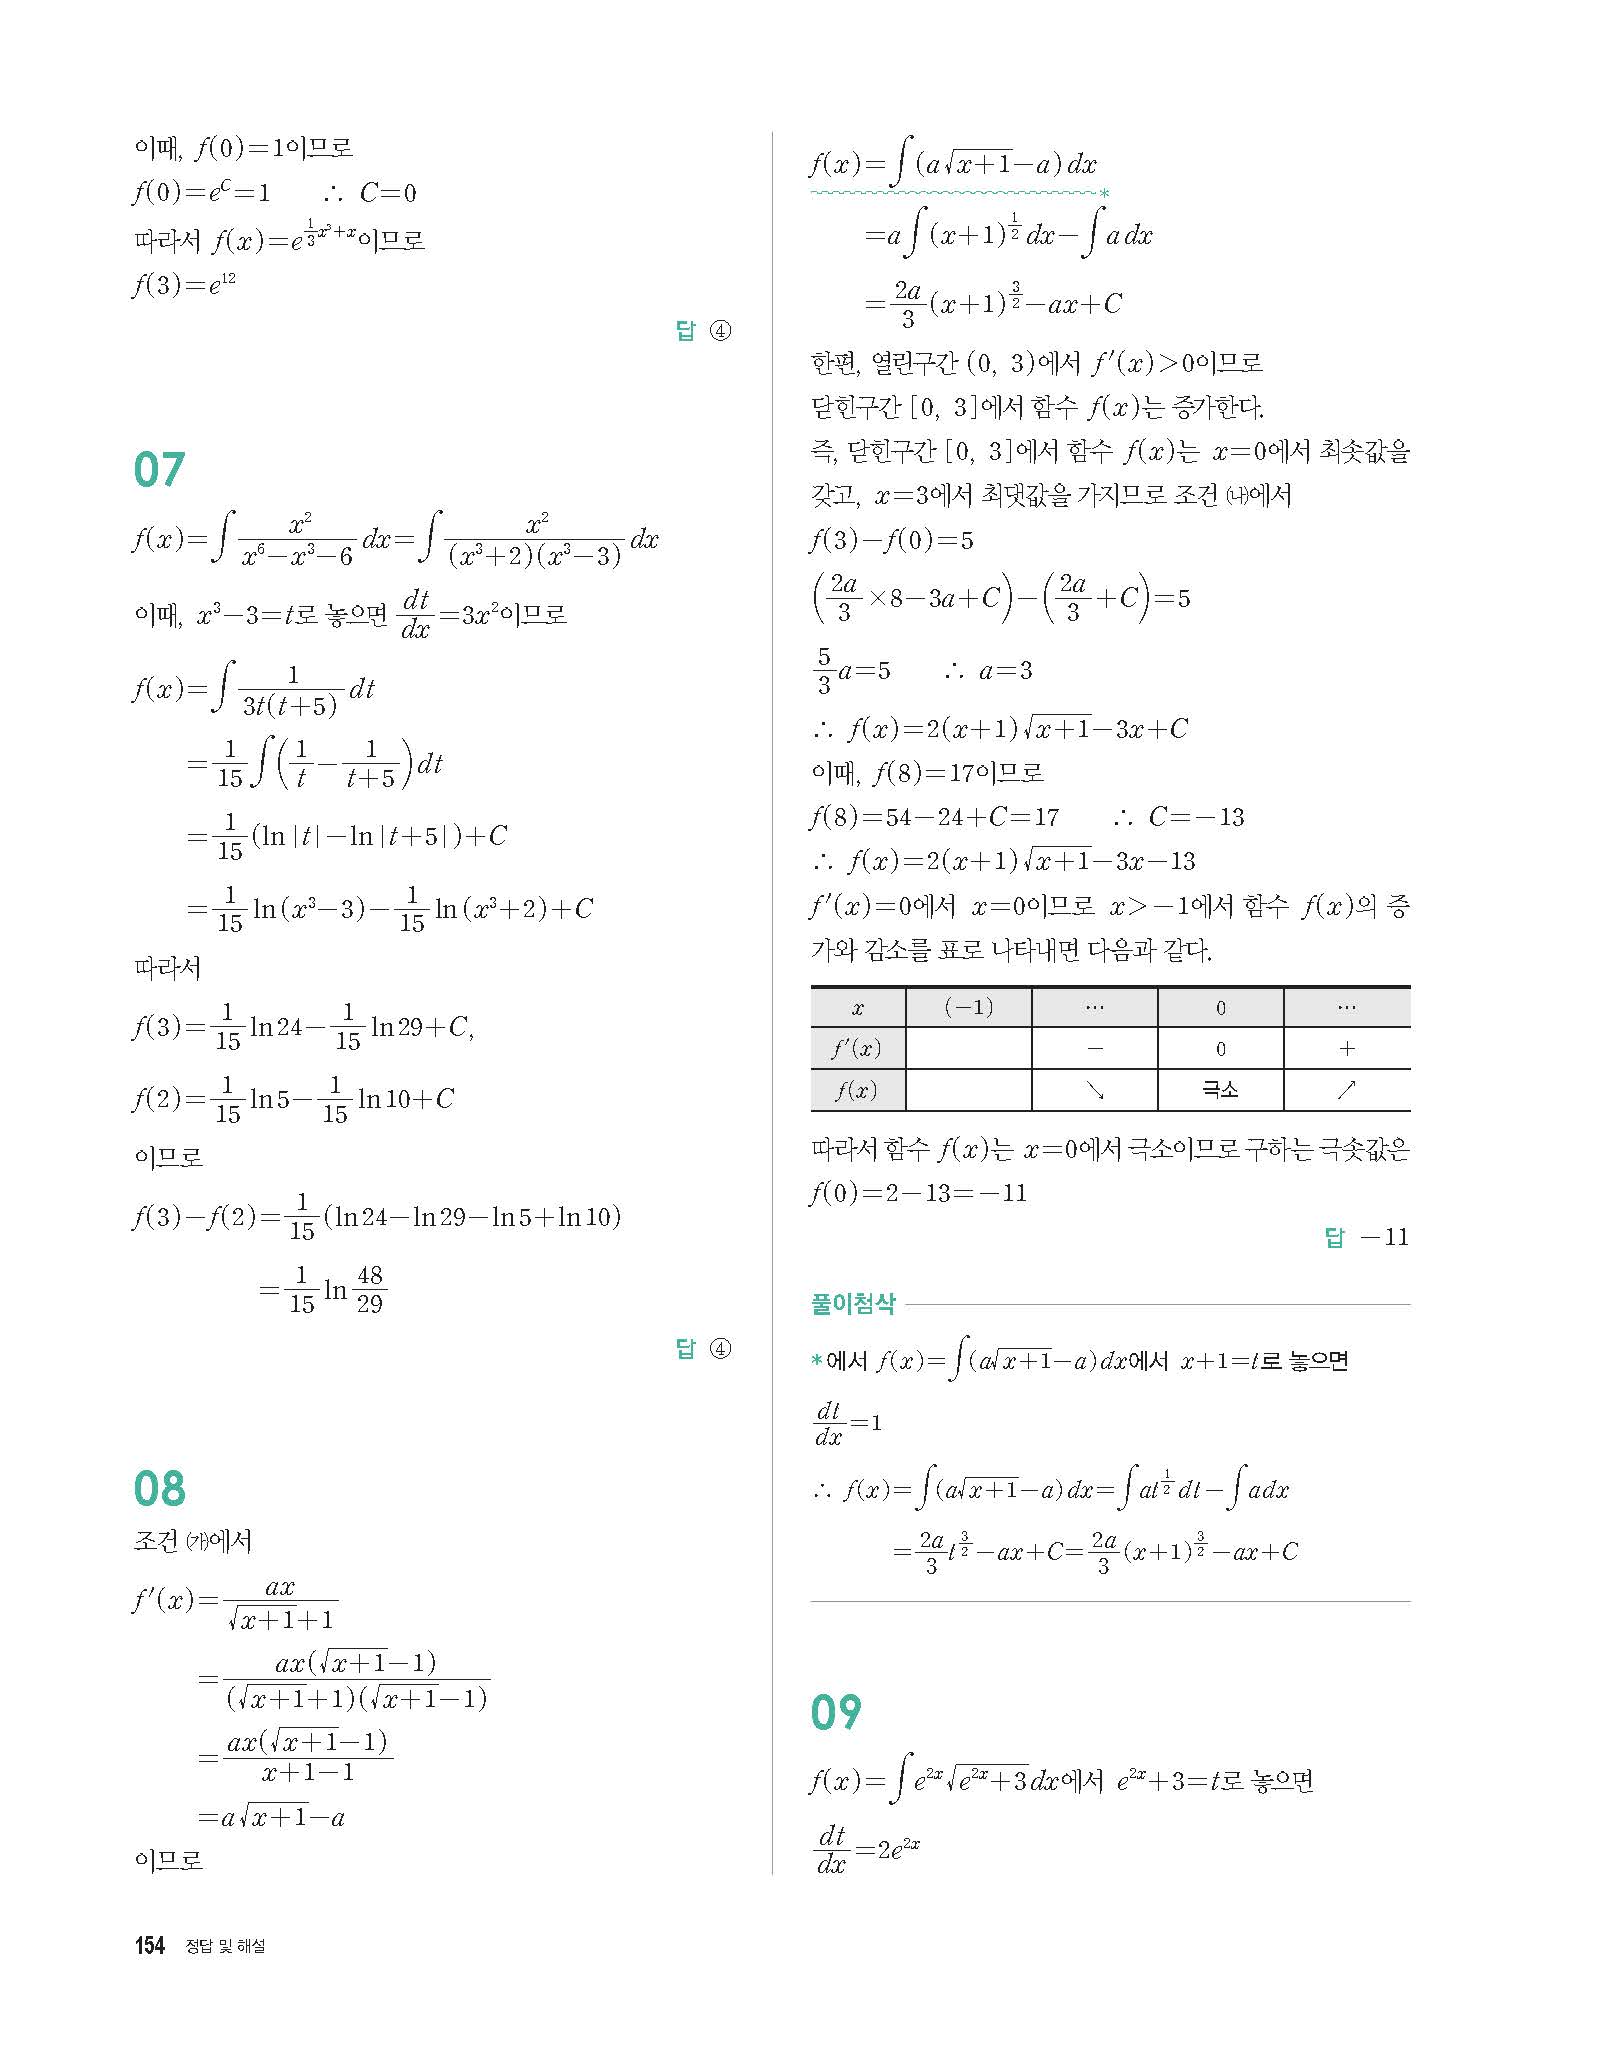 이때, f(0)=1이므로
f(0)=e^C=1 ∴ C=0
따라서 f(x)=e^{\frac{1}{3}x^3+x}이므로
f(3)=e^{12}
답 ④
07
f(x)=∫\frac{x^2}{x^6-x^3-6}dx=∫\frac{x^2}{(x^3+2)(x^3-3)}dx
이때, x^3-3=t로 놓으면 \frac{dt}{dx}=3x^2이므로
f(x)=∫\frac{1}{3t(t+5)}dt
=\frac{1}{15}∫(\frac{1}{t}-\frac{1}{t+5})dt
=\frac{1}{15}(ln|t|-ln|t+5|)+C
=\frac{1}{15}ln(x^3-3)-\frac{1}{15}ln(x^3+2)+C
따라서
f(3)=\frac{1}{15}ln24-\frac{1}{15}ln29+C,
f(2)=\frac{1}{15}ln5-\frac{1}{15}ln10+C
이므로
f(3)-f(2)=\frac{1}{15}(ln24-ln29-ln5+ln10)
=\frac{1}{15}ln\frac{48}{29}
답 ④
08
조건 ㈎에서
f′(x)=\frac{ax}{\sqrt{x+1}+1}
=\frac{ax(\sqrt{x+1}-1)}{(\sqrt{x+1}+1)(\sqrt{x+1}-1)}
=\frac{ax(\sqrt{x+1}-1)}{x+1-1}
=a\sqrt{x+1}-a
이므로
f(x)=∫(a\sqrt{x+1}-a)dx
*
=a∫(x+1)^{\frac{1}{2}}dx-∫adx
=\frac{2a}{3}(x+1)^{\frac{3}{2}}-ax+C
한편, 열린구간 (0, 3)에서 f′(x)>0이므로
닫힌구간 [0, 3]에서 함수 f(x)는 증가한다.
즉, 닫힌구간 [0, 3]에서 함수 f(x)는 x=0에서 최솟값을
갖고, x=3에서 최댓값을 가지므로 조건 ㈏에서
f(3)-f(0)=5
(\frac{2a}{3}×8-3a+C)-(\frac{2a}{3}+C)=5
\frac{5}{3}a=5 ∴ a=3
∴ f(x)=2(x+1)\sqrt{x+1}-3x+C
이때, f(8)=17이므로
f(8)=54-24+C=17 ∴ C=-13
∴ f(x)=2(x+1)\sqrt{x+1}-3x-13
f′(x)=0에서 x=0이므로 x>-1에서 함수 f(x)의 증
가와 감소를 표로 나타내면 다음과 같다.
x (-1) … 0 …
f′(x) - 0 +
f(x) ↘ 극소 ↗
따라서 함수 f(x)는 x=0에서 극소이므로 구하는 극솟값은
f(0)=2-13=-11
답 -11
풀이첨삭
*에서 f(x)=∫(a\sqrt{x+1}-a)dx에서 x+1=t로 놓으면
\frac{dt}{dx}=1
∴ f(x)=∫(a\sqrt{x+1}-a)dx=∫at^{\frac{1}{2}}dt-∫adx
=\frac{2a}{3}t^{\frac{3}{2}}-ax+C=\frac{2a}{3}(x+1)^{\frac{3}{2}}-ax+C
09
f(x)=∫e^{2x}\sqrt{e^{2x}+3}dx에서 e^{2x}+3=t로 놓으면
\frac{dt}{dx}=2e^{2x}
154 정답 및 해설